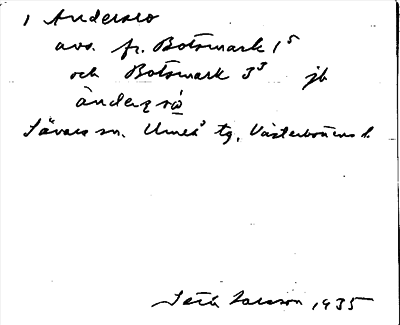 1 Andersro
avs. fr. Botsmark 1⁵
och Botsmark 3³ jb
ànderṣrò
Sävars sn. Umeå tg, Västerbottens l.
Seth Larsson 1935